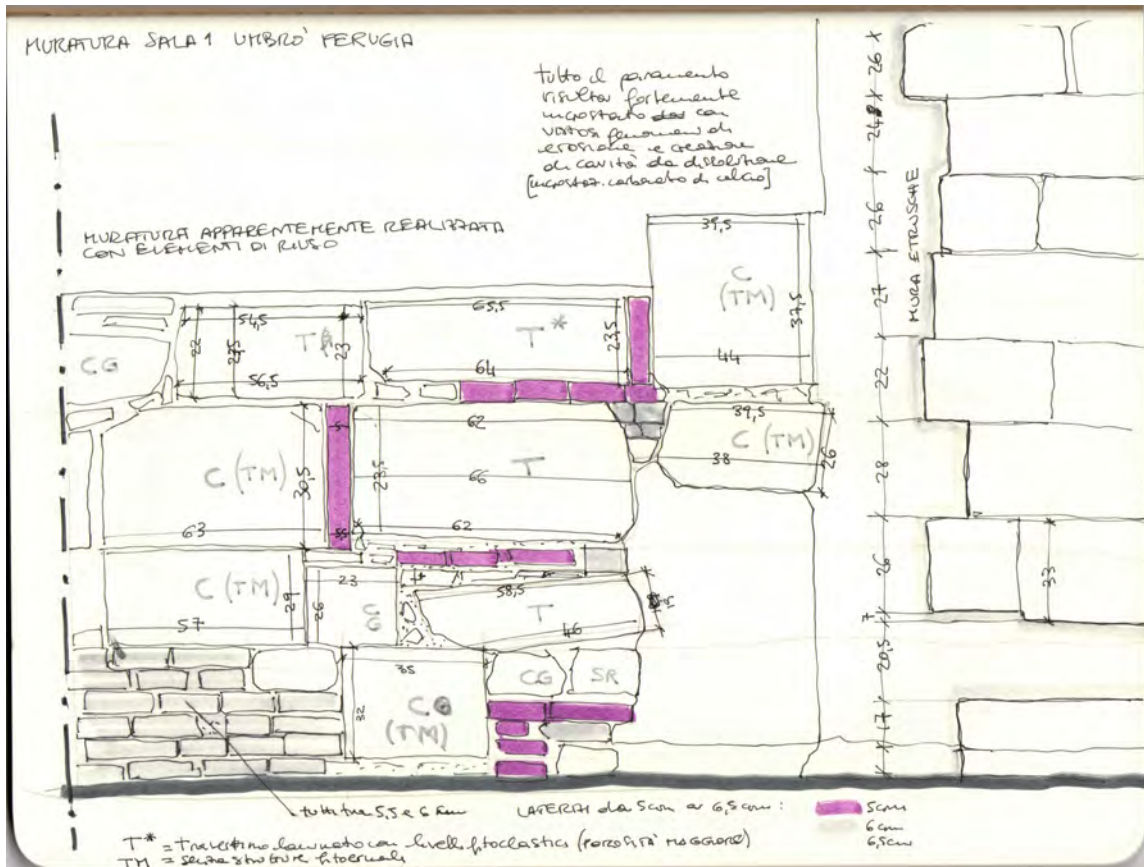 MURATURA SALA 1 UMBRÒ PERUGIA
tutto il paramento
risulta fortemente
incrostato con
vistosi fenomeni di
erosione e creazione
di cavità da dissoluzione
[incrostaz. carbonato di calcio]
MURATURA APPARENTEMENTE REALIZZATA
CON ELEMENTI DI RIUSO
39,5
C
(TM)
37,5
44
54,5
22
T
23
56,5
CG
65,5
T*
23,5
64
C (TM)
30,5
63
5
5,5
62
23,5
T
66
62
39,5
C (TM)
38
26
C (TM)
29
57
23
26
C
G
58,5
T
46
35
32
(TM)
CG
SR
MURA ETRUSCHE
26
24
26
27
22
28
26
7
20,5
17
33
tutti tra 5,5 e 6 cm
LATERIZI da 5cm a 6,5cm:
5cm
6cm
6,5cm
T* = Travertino laminato con livelli fitoclastici (POROSITÀ MAGGIORE)
TM = senza strutture fitoermali